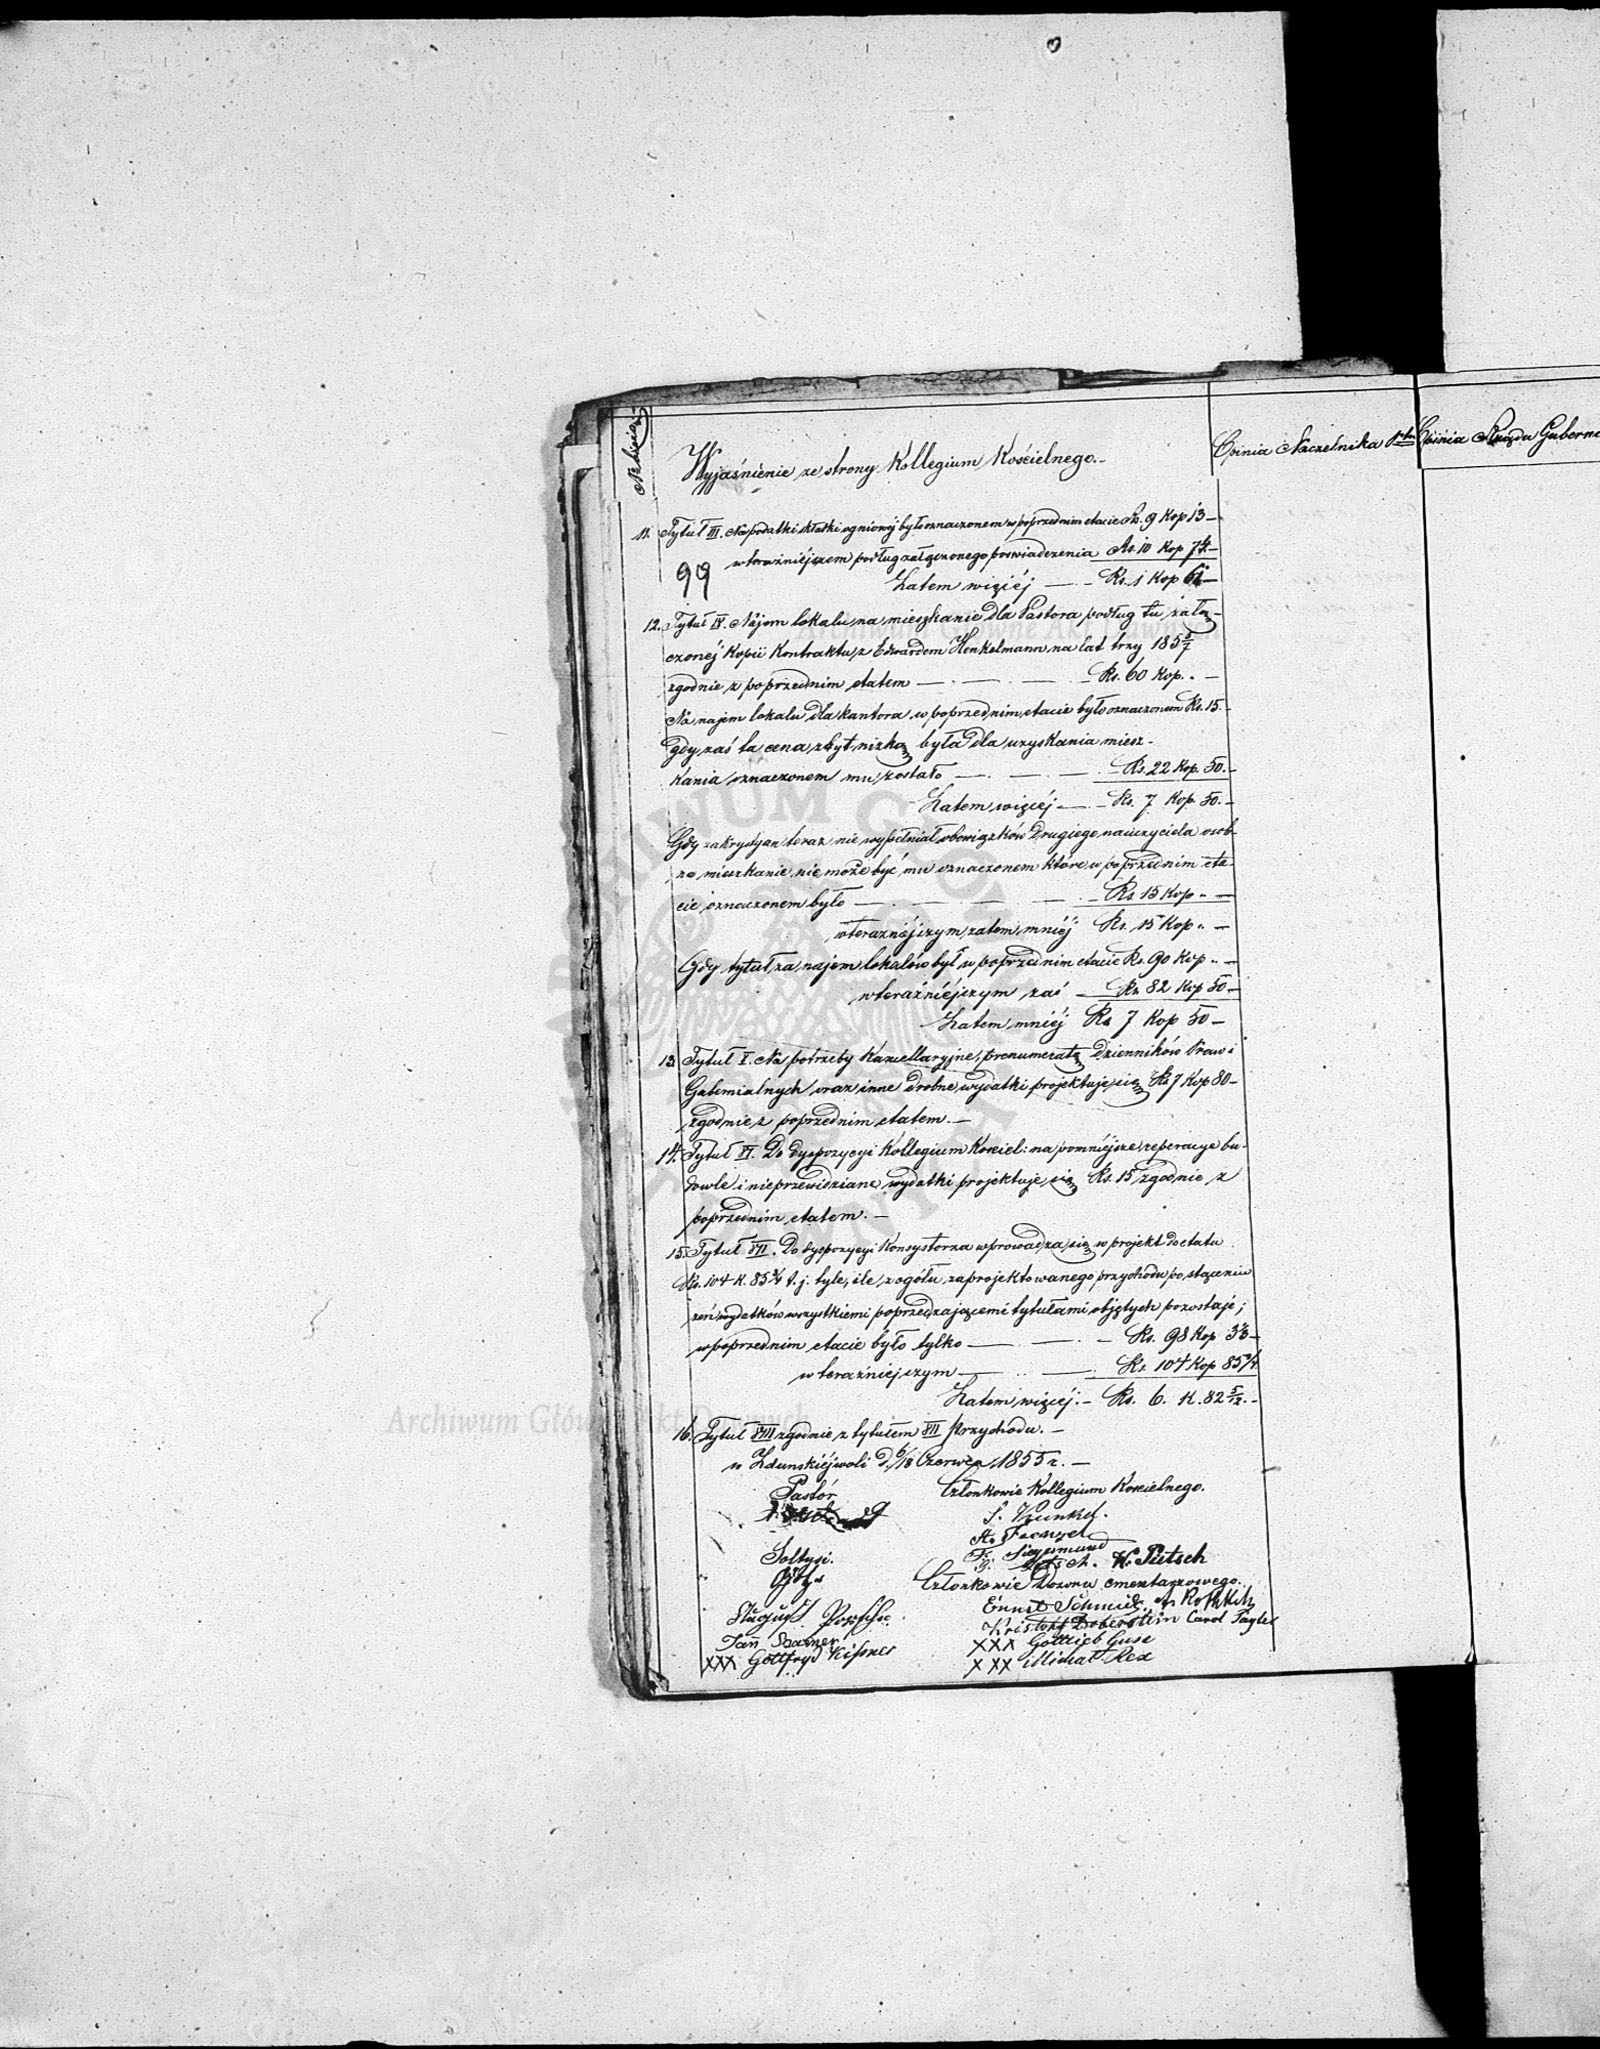 Wyjaśnienie ze strony Kollegium Kościelnego.-
Opinia Naczelnika Ptu
Opinia Rządu Guberni
11. Tytuł III. Na podatki składki ogniowej było oznaczonem w poprzednim etacie Rs. 9 Kop 13 -
w teraźniejszem podług załączonego poświadczenia Rs. 10 Kop 74. -
99
Zatem więcej - Rs. 1 Kop 61 -
12. Tytuł IV. Najem lokalu na mieszkanie dla Pastora podług tu załą-
czonej Kopii Kontraktu z Edwardem Henkelmann na lat trzy 185 5/7
zgodnie z poprzednim etatem - Rs. 60 Kop. " -
Na najem lokalu dla kantora w poprzednim etacie było oznaczonem Rs. 15. -
gdy zaś ta cena zbyt nizką była dla uzyskania miesz-
kania oznaczonem mu zostało - Rs. 22 Kop. 50. -
Zatem więcej - Rs. 7 Kop. 50. -
Gdy zakrystyan teraz nie wypełniał obowiązków drugiego nauczyciela osob-
ne mieszkanie nie może być mu oznaczonem które w poprzednim eta-
cie oznaczonem było - Rs. 15 Kop " -
w teraźniejszym zatem mniéj Rs. 15 Kop " -
Gdy tytuł za najem lokalów był w poprzednim etacie Rs. 90 Kop " -
w teraźniejszym zaś - Rs. 82 Kop 50 -
Zatem mniéj Rs 7 Kop 50 -
13. Tytuł V. Na potrzeby Kancellaryjne, prenumeratę Dzienników Praw i
Gubernialnych oraz inne drobne wydatki projektuje się Rs 7 Kop 80 -
zgodnie z poprzednim etatem. -
14. Tytuł VI. Do dyspozycyi Kollegium Kościel: na pomniejsze reperacye bu-
dowle i nieprzewidziane wydatki projektuje się Rs. 15 zgodnie z
poprzednim etatem. -
15. Tytuł VII. Do dyspozycyi Konsystorza wprowadza się w projekt do etatu
Rs. 104 K. 85 3/4 t. j. tyle, ile z ogółu zaprojektowanego przychodu po strąceniu
zeń wydatków wszystkiemi poprzedzającemi tytułami objętych pozostaje;
w poprzednim etacie było tylko - Rs. 98 Kop 3 1/3 -
w teraźniejszym - Rs. 104 Kop 85 3/4
Zatem więcej. - Rs. 6. K. 82 5/12. -
16. Tytuł VIII zgodnie z tytułem VIII Przychodu. -
w Zduńskiéjwoli d. 6/18 Czerwca 1855 r. -
Pastór
Członkowie Kollegium Kościelnego.
S. Kunkel.
A. Frenzel
Fr. Siegesmund
W. Pietsch
Sołtysi.
Członkowie Dozoru cmentarzowego.
Ernst Schmidt
August
Kristof Doberstein Carol Tayler
Jan
XXX Gottlieb Guse
XXX Gottfryd Kissner
XXX Michał Rex
Archiwum Główne Akt Dawnych